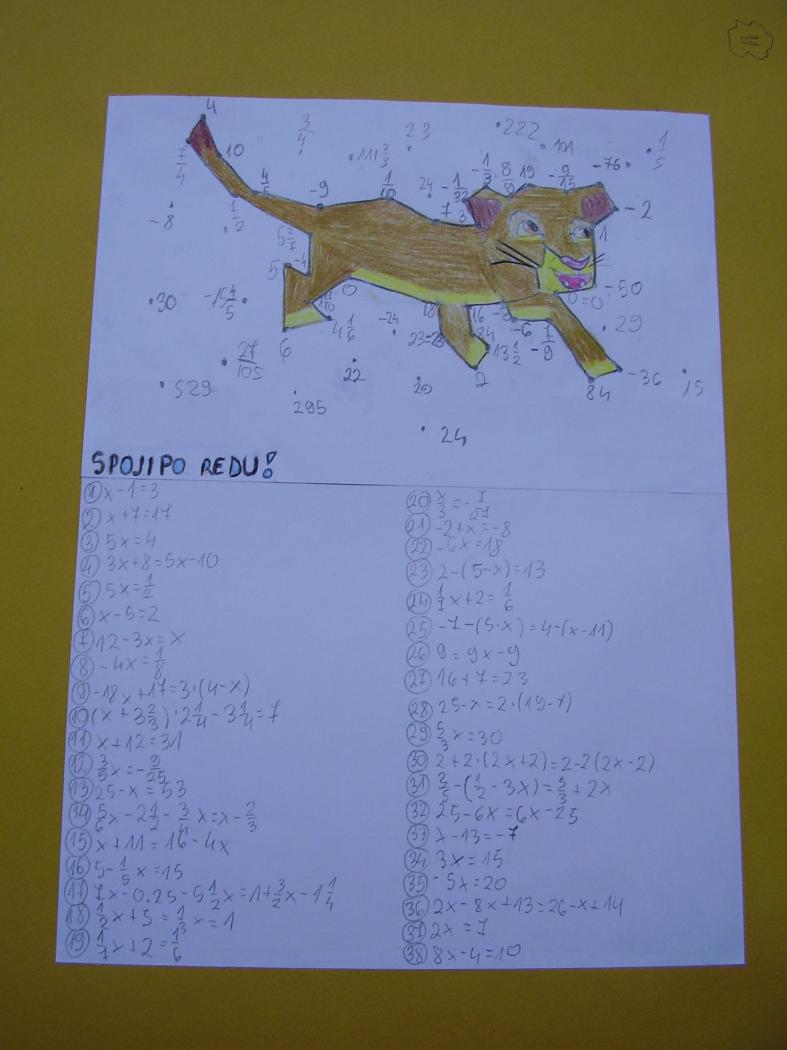 4
3/4
23
222
101
1/5
7/4
10
111 2/3
-1/3
8/9
19
-9/15
-76
4/5
-9
1/10
24
-1/32
-2
-8
1/2
7
3
1
5 2/7
5
-4
0
-50
30
-15 4/5
4 1/6
-24
18
16
84
-6
29
6
27/105
23=23
13 1/2
-7/9
0=0
22
29
2
-36
15
529
295
84
24
SPOJI PO REDU!
1 x-1=3
2 x+7=17
3 5x=4
4 3x+8=5x-10
5 5x=1/2
6 x-5=2
7 12-3x=x
8 -4x=1/8
9 -18x+17=3·(4-x)
10 (x+3 2/3)·2 1/4-3 1/4=7
11 x+12=31
12 3/5x=-9/25
13 25-x=53
14 5/6x-2 1/2-3/4x=x-2/3
15 x+11=16-4x
16 5-1/5x=15
17 7x-0.25-5 1/2x=1+3/2x-1 1/4
18 1/2x+5=1/3x=1
19 1/7x+2=1/6
20 x/3=-7/27
21 -2+x=-8
22 -6x=18
23 2-(5-x)=13
24 1/7x+2=1/6
25 -7-(5·x)=4-(x-11)
26 9=9x-9
27 16+7=23
28 25-x=2·(19-7)
29 5/3x=30
30 2+2·(2x+2)=2-2(2x-2)
31 2/5-(1/2-3x)=5/3+2x
32 25-6x=6x-25
33 x-13=-7
34 3x=15
35 -5x=20
36 2x-8x+13=26-x+14
37 2x=7
38 8x-4=10